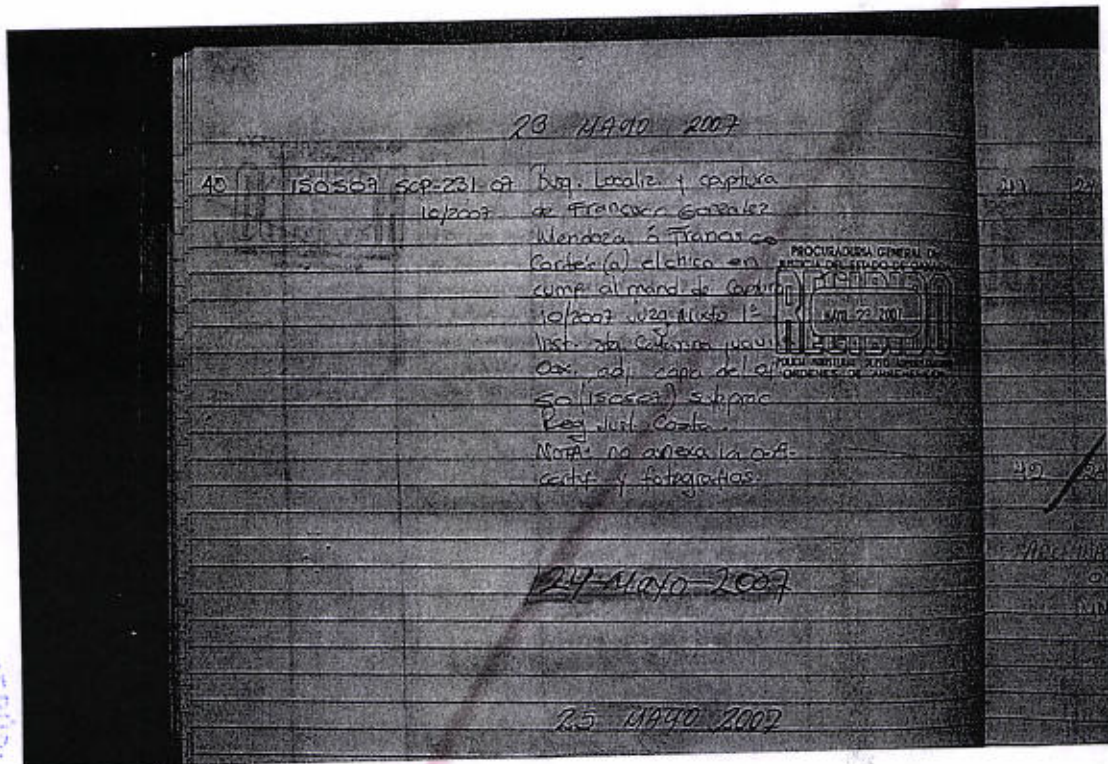 23 MAYO 2007
40 150507 SCP-231-07 Busq. Localiz. y captura
10/2007 de Francisco Gonzalez
Mendoza ó Francisco
Cortés (a) el chico en
cump. al mand. de Captura
10/2007 Juzg. Mixto 1ª
Inst. Sta Catarina Juqui
Oax. adj. copia del of.
50/150507 Subproc
Reg. Just. Costa.
NOTA: no anexa la O.A.
certif. y fotografias.
PROCURADURIA GENERAL DE
JUSTICIA DEL ESTADO DE OAXACA
RECIBIDO
MAYO 23 2007
ORDENES DE APREHENSION
24-Mayo-2007
25 MAYO 2007
42